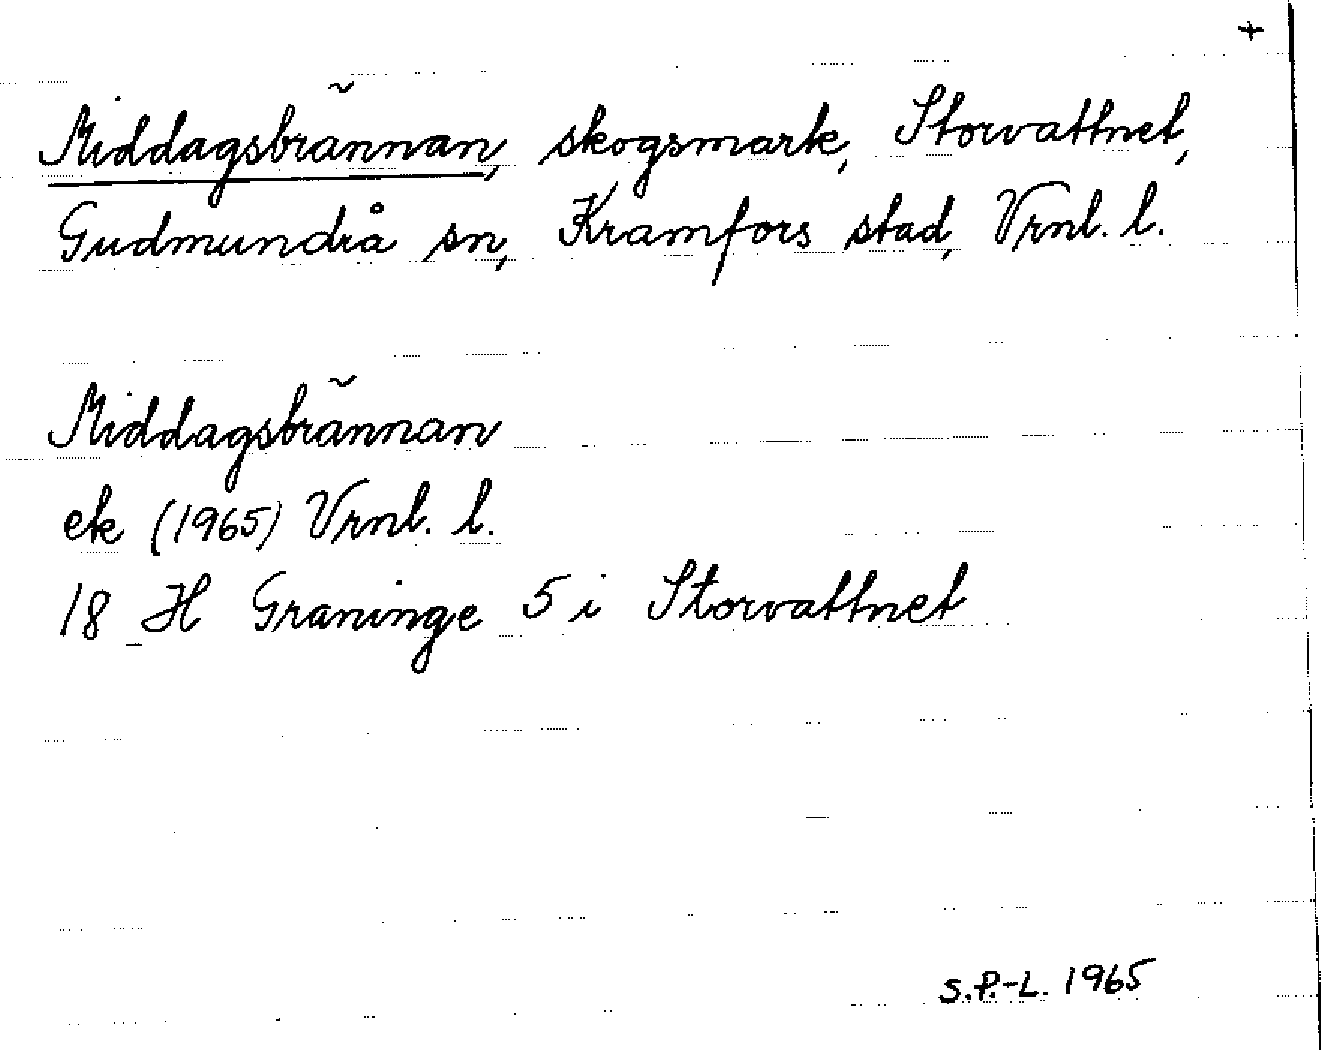 +
Middagsbrännan, skogsmark, Storvattnet,
Gudmundrå sn, Kramfors stad, Vrnl. l.
Middagsbrännan
ek (1965) Vrnl. l.
18 H Graninge 5 i Storvattnet
S.P.-L. 1965